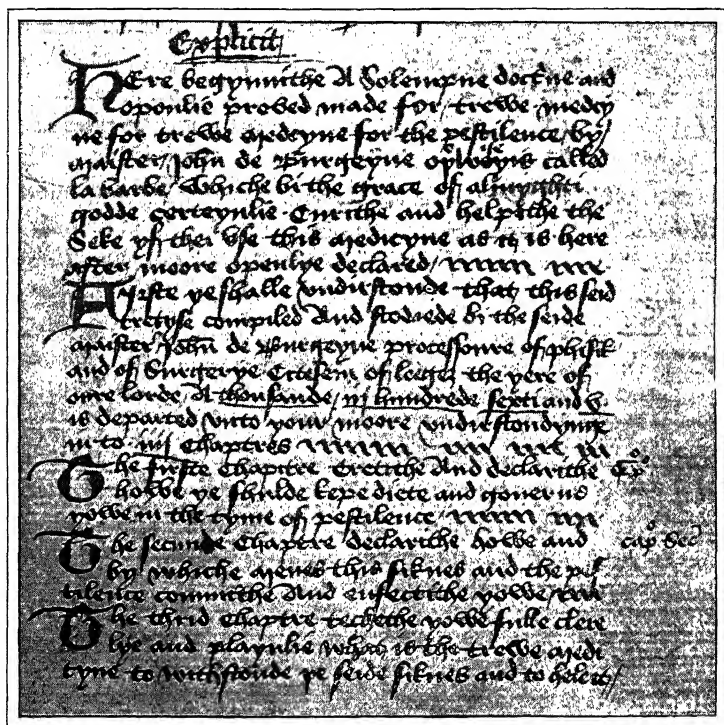 Explicit
HEre begynnithe A Solempne doct'ne and
oponlie proved made for / trewe medcy
ne for trewe medcyne for the pestilence / by
maister / John de Burgeyne called
la barbe / Whiche bi the grace of almyghti
godde certeynlie Curithe and helpithe the
Seke yf thei vse this medicyne as it is here
after moore openlye declared /
Firste ye shalle vndirstonde that this seid
tretyse compiled And stodiede bi the seide
maister / John de Burgeyne processoure of phisik
and of Surgerye Citesein of leeger the yere of
oure lorde A thousande / iij hundrede sexti and v.
is departed vnto your / moore vndirstondynge
in to iiij Chaptres
The firste Chapitre techithe And declarithe
howe ye shulde kepe diete and governe
yowe in the tyme of pestilence /
The secunde Chaptre declarithe howe and cap° Sec
by whiche menes this siknes and the pes
tilence commithe And enfectithe yowe /
The thrid Chaptre techethe yowe fulle clere
lye and playnlie what is the trewe medi
cyne to withstonde þe seide siknes and to hele it /